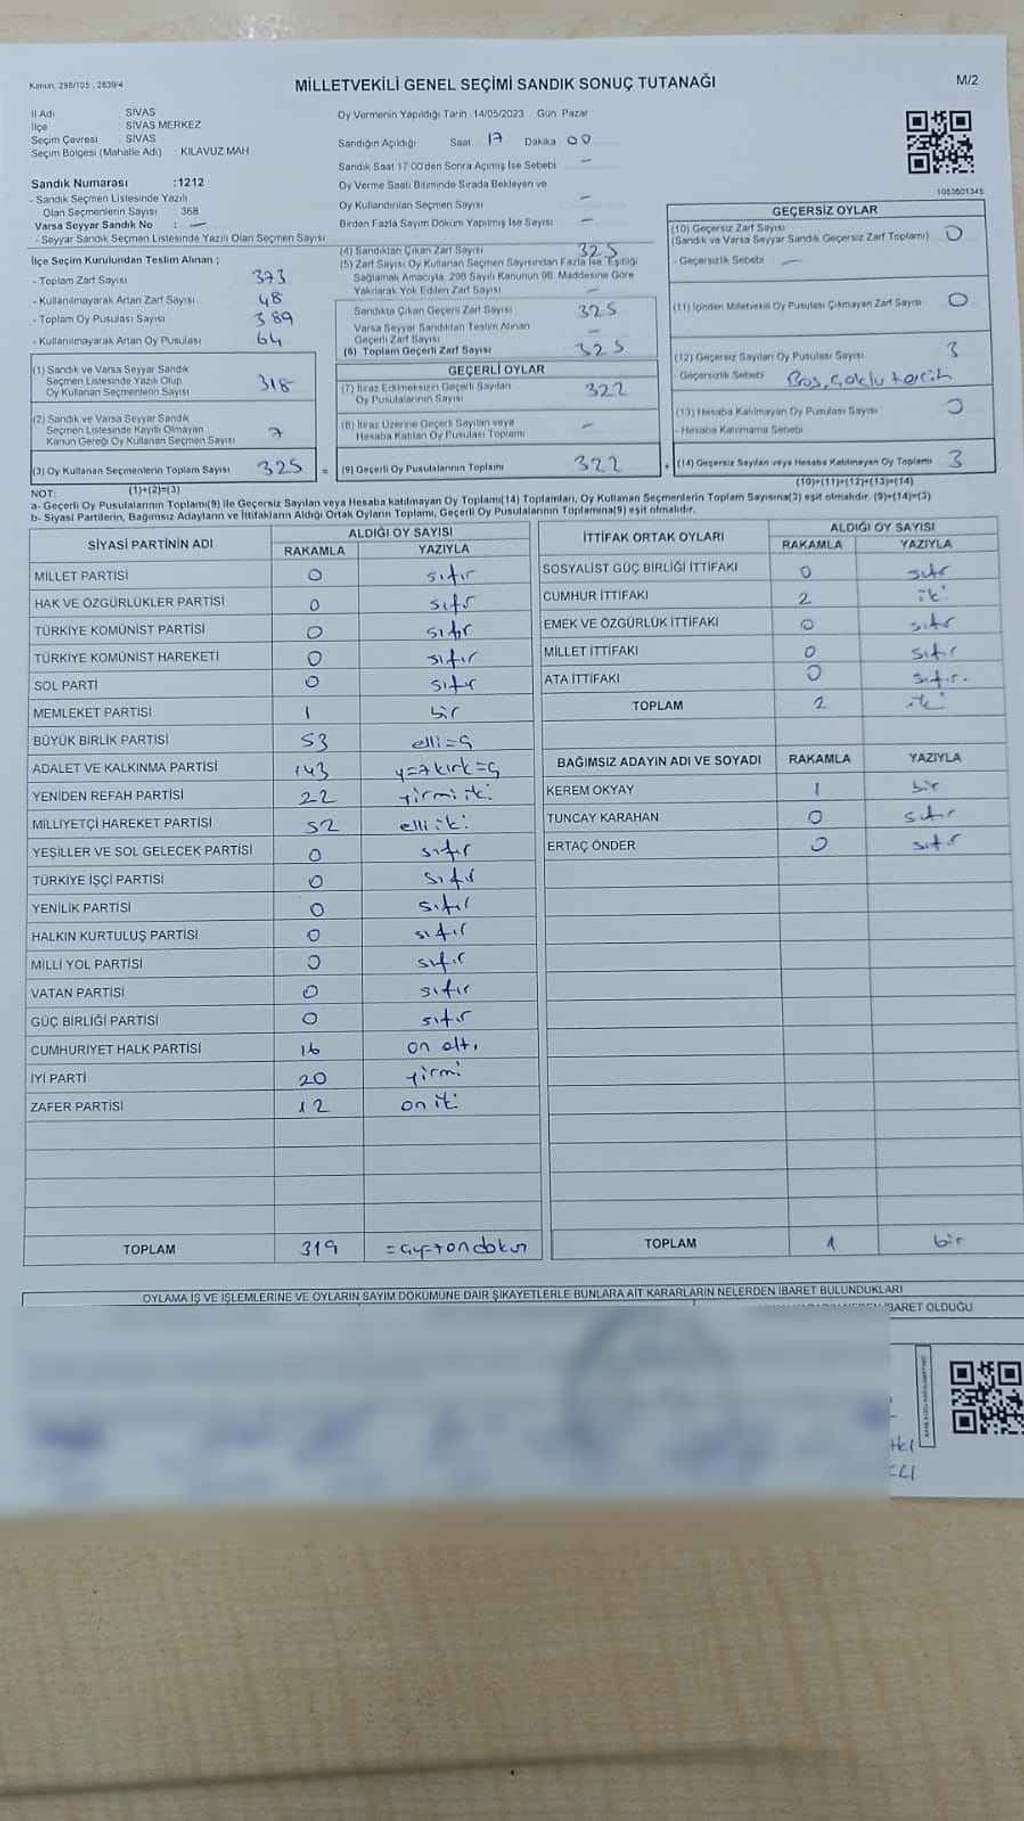 Kanun: 298/105 , 2839/4
MİLLETVEKİLİ GENEL SEÇİMİ SANDIK SONUÇ TUTANAĞI
M/2
İl Adı SİVAS
İlçe SİVAS MERKEZ
Seçim Çevresi SİVAS
Seçim Bölgesi (Mahalle Adı) : KILAVUZ MAH
Sandık Numarası :1212
- Sandık Seçmen Listesinde Yazılı
Olan Seçmenlerin Sayısı : 368
Varsa Seyyar Sandık No : —
- Seyyar Sandık Seçmen Listesinde Yazılı Olan Seçmen Sayısı
İlçe Seçim Kurulundan Teslim Alınan ;
- Toplam Zarf Sayısı 373
- Kullanılmayarak Artan Zarf Sayısı 48
- Toplam Oy Pusulası Sayısı 389
- Kullanılmayarak Artan Oy Pusulası 64
(1) Sandık ve Varsa Seyyar Sandık
Seçmen Listesinde Yazılı Olup
Oy Kullanan Seçmenlerin Sayısı 318
(2) Sandık ve Varsa Seyyar Sandık
Seçmen Listesinde Kayıtlı Olmayan
Kanun Gereği Oy Kullanan Seçmen Sayısı 7
(3) Oy Kullanan Seçmenlerin Toplam Sayısı 325 =
(1)+(2)=(3)
Oy Vermenin Yapıldığı Tarih :14/05/2023 Gün: Pazar
Sandığın Açıldığı Saat: 17 Dakika 00
Sandık Saat 17:00'den Sonra Açılmış İse Sebebi —
Oy Verme Saati Bitiminde Sırada Bekleyen ve
Oy Kullandırılan Seçmen Sayısı —
Birden Fazla Sayım Döküm Yapılmış İse Sayısı —
(4) Sandıktan Çıkan Zarf Sayısı 325
(5) Zarf Sayısı Oy Kullanan Seçmen Sayısından Fazla İse, Eşitliği
Sağlamak Amacıyla, 298 Sayılı Kanunun 98. Maddesine Göre
Yakılarak Yok Edilen Zarf Sayısı —
Sandıkta Çıkan Geçerli Zarf Sayısı 325
Varsa Seyyar Sandıktan Teslim Alınan
Geçerli Zarf Sayısı —
(6) Toplam Geçerli Zarf Sayısı 325
GEÇERLİ OYLAR
(7) İtiraz Edilmeksizin Geçerli Sayılan
Oy Pusulalarının Sayısı 322
(8) İtiraz Üzerine Geçerli Sayılan veya
Hesaba Katılan Oy Pusulası Toplamı —
(9) Geçerli Oy Pusulalarının Toplamı 322 +
1053601345
GEÇERSİZ OYLAR
(10) Geçersiz Zarf Sayısı
(Sandık ve Varsa Seyyar Sandık Geçersiz Zarf Toplamı) 0
- Geçersizlik Sebebi —
(11) İçinden Milletvekili Oy Pusulası Çıkmayan Zarf Sayısı 0
(12) Geçersiz Sayılan Oy Pusulası Sayısı 3
- Geçersizlik Sebebi Boş, çoklu tercih
(13) Hesaba Katılmayan Oy Pusulası Sayısı 0
- Hesaba Katılmama Sebebi
(14) Geçersiz Sayılan veya Hesaba Katılmayan Oy Toplamı 3
(10)+(11)+(12)+(13)=(14)
NOT:
a- Geçerli Oy Pusulalarının Toplamı(9) ile Geçersiz Sayılan veya Hesaba katılmayan Oy Toplamı(14) Toplamları, Oy Kullanan Seçmenlerin Toplam Sayısına(3) eşit olmalıdır. (9)+(14)=(3)
b- Siyasi Partilerin, Bağımsız Adayların ve İttifakların Aldığı Ortak Oyların Toplamı, Geçerli Oy Pusulalarının Toplamına(9) eşit olmalıdır.
SİYASİ PARTİNİN ADI ALDIĞI OY SAYISI
RAKAMLA YAZIYLA
MİLLET PARTİSİ 0 sıfır
HAK VE ÖZGÜRLÜKLER PARTİSİ 0 sıfır
TÜRKİYE KOMÜNİST PARTİSİ 0 sıfır
TÜRKİYE KOMÜNİST HAREKETİ 0 sıfır
SOL PARTİ 0 sıfır
MEMLEKET PARTİSİ 1 bir
BÜYÜK BİRLİK PARTİSİ 53 elli
ADALET VE KALKINMA PARTİSİ 143
YENİDEN REFAH PARTİSİ 22 yirmi iki
MİLLİYETÇİ HAREKET PARTİSİ 52 elli iki
YEŞİLLER VE SOL GELECEK PARTİSİ 0 sıfır
TÜRKİYE İŞÇİ PARTİSİ 0 sıfır
YENİLİK PARTİSİ 0 sıfır
HALKIN KURTULUŞ PARTİSİ 0 sıfır
MİLLİ YOL PARTİSİ 0 sıfır
VATAN PARTİSİ 0 sıfır
GÜÇ BİRLİĞİ PARTİSİ 0 sıfır
CUMHURİYET HALK PARTİSİ 16 on altı
İYİ PARTİ 20 yirmi
ZAFER PARTİSİ 12 on iki
TOPLAM 319
İTTİFAK ORTAK OYLARI ALDIĞI OY SAYISI
RAKAMLA YAZIYLA
SOSYALİST GÜÇ BİRLİĞİ İTTİFAKI 0 sıfır
CUMHUR İTTİFAKI 2 iki
EMEK VE ÖZGÜRLÜK İTTİFAKI 0 sıfır
MİLLET İTTİFAKI 0 sıfır
ATA İTTİFAKI 0 sıfır.
TOPLAM 2 iki
BAĞIMSIZ ADAYIN ADI VE SOYADI RAKAMLA YAZIYLA
KEREM OKYAY 1 bir
TUNCAY KARAHAN 0 sıfır
ERTAÇ ÖNDER 0 sıfır
TOPLAM 1 bir
OYLAMA İŞ VE İŞLEMLERİNE VE OYLARIN SAYIM DÖKÜMÜNE DAİR ŞİKAYETLERLE BUNLARA AİT KARARLARIN NELERDEN İBARET BULUNDUKLARI
İBARET OLDUĞU